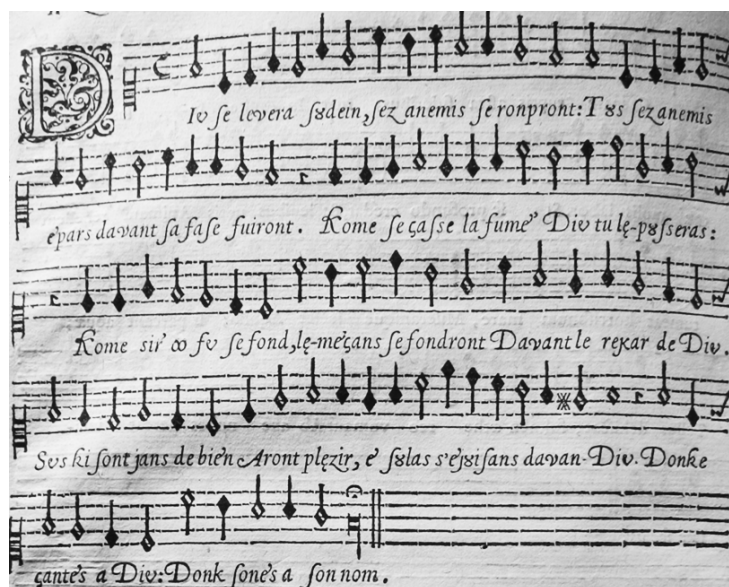 DIv se lęvera sȣdein, sez anemis se ronpront: Tȣs sez anemis
epars davant sa fase fuiront. Kome se çasse la fumé Div tu lę-pȣsseras:
Kome sir' ꝏ fv se fond, lę-meçans se fondront Davant le regar de Div.
Sęvs ki sont jans de bien Aront plęzir, é sȣlas s'ejȣisans davan-Div. Donke
çantés a Div: Donk sonés a son nom.